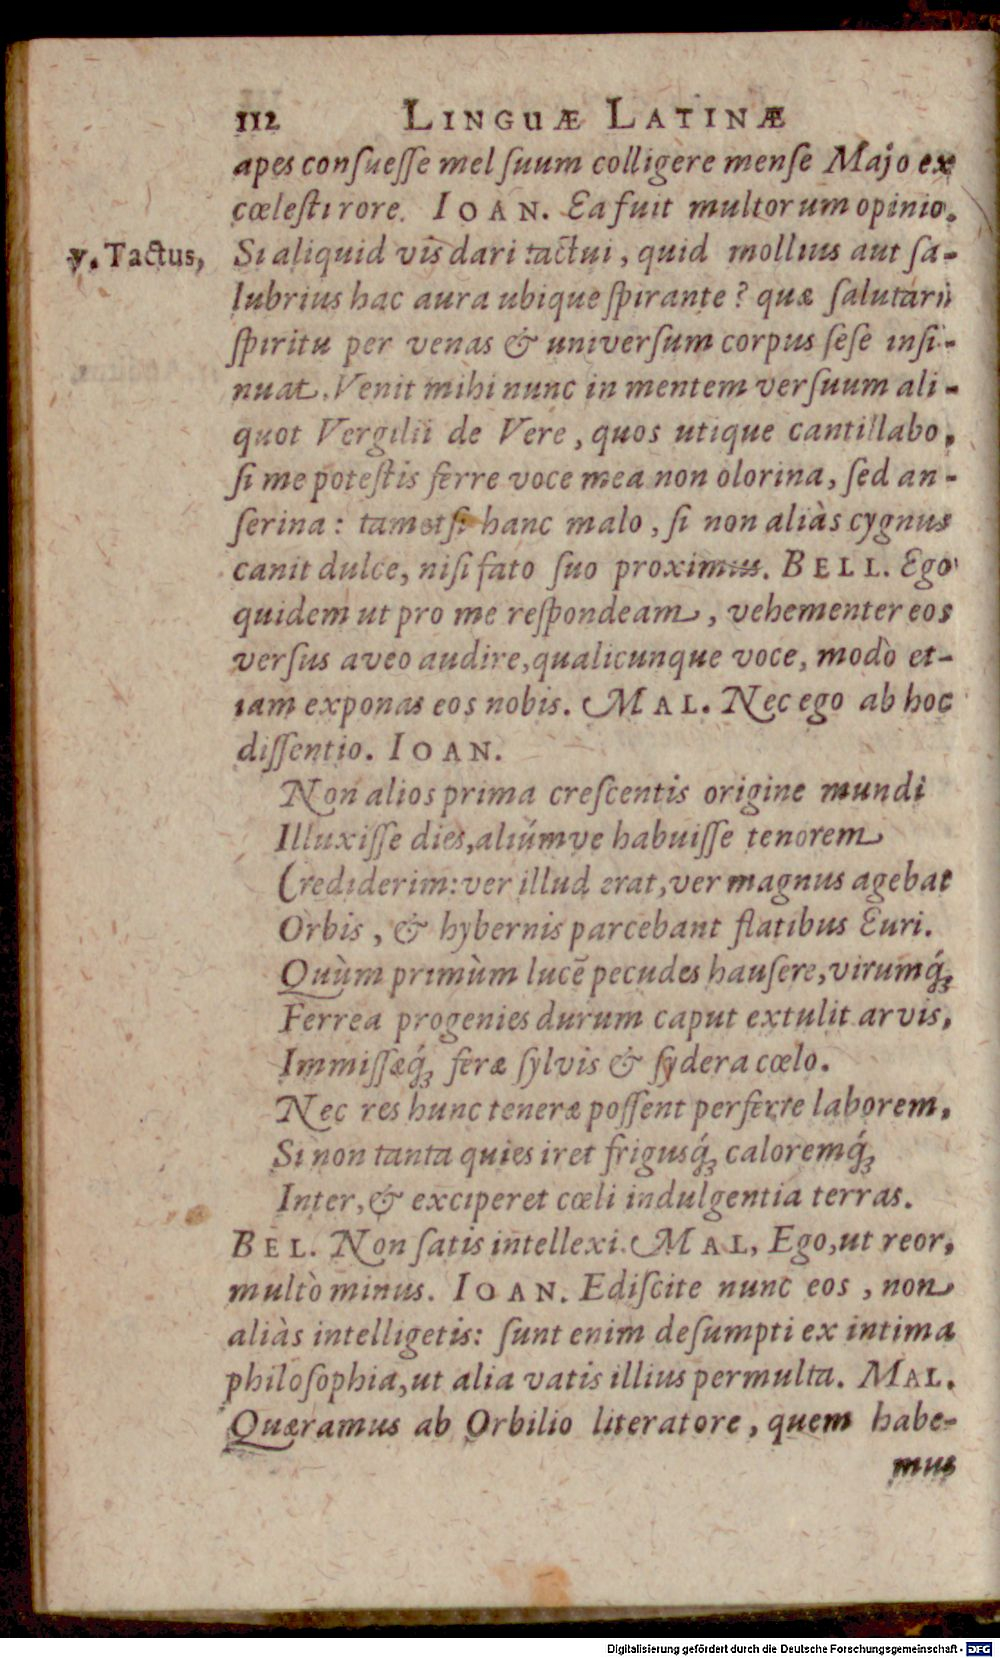 112 LINGUÆ LATINÆ
apes consuesse mel suum colligere mense Majo ex
cœlesti rore. IOAN. Ea fuit multorum opinio.
v. Tactus, Si aliquid vis dari tactui, quid mollius aut sa-
lubrius hac aura ubique spirante? quæ salutari
spiritu per venas & universum corpus sese insi-
nuat. Venit mihi nunc in mentem versuum ali-
quot Vergilii de Vere, quos utique cantillabo,
si me potestis ferre voce mea non olorina, sed an-
serina: tametsi hanc malo, si non aliàs cygnus
canit dulce, nisi fato suo proximus. BELL. Ego
quidem ut pro me respondeam, vehementer eos
versus aveo audire, qualicunque voce, modò et-
iam exponas eos nobis. MAL. Nec ego ab hoc
dissentio. IOAN.
Non alios prima crescentis origine mundi
Illuxisse dies, aliúmve habuisse tenorem
Crediderim: ver illud erat, ver magnus agebat
Orbis, & hybernis parcebant flatibus Euri.
Quùm primùm lucē pecudes hausere, virumq́;
Ferrea progenies durum caput extulit arvis,
Immissæq́; feræ sylvis & sydera cœlo.
Nec res hunc teneræ possent perferre laborem,
Si non tanta quies iret frigusq́; caloremq́;
Inter, & exciperet cœli indulgentia terras.
BEL. Non satis intellexi. MAL, Ego, ut reor,
multò minus. IOAN. Ediscite nunc eos, non
aliàs intelligetis: sunt enim desumpti ex intima
philosophia, ut alia vatis illius permulta. MAL.
Quæramus ab Orbilio literatore, quem habe-
mus
Digitalisierung gefördert durch die Deutsche Forschungsgemeinschaft - DFG